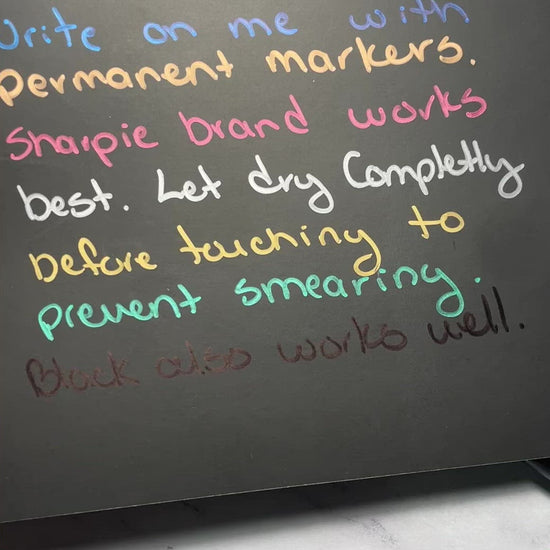 Write on me with
permanent markers.
Sharpie brand works
best. Let dry Completly
before touching to
prevent smearing.
Black also works well.